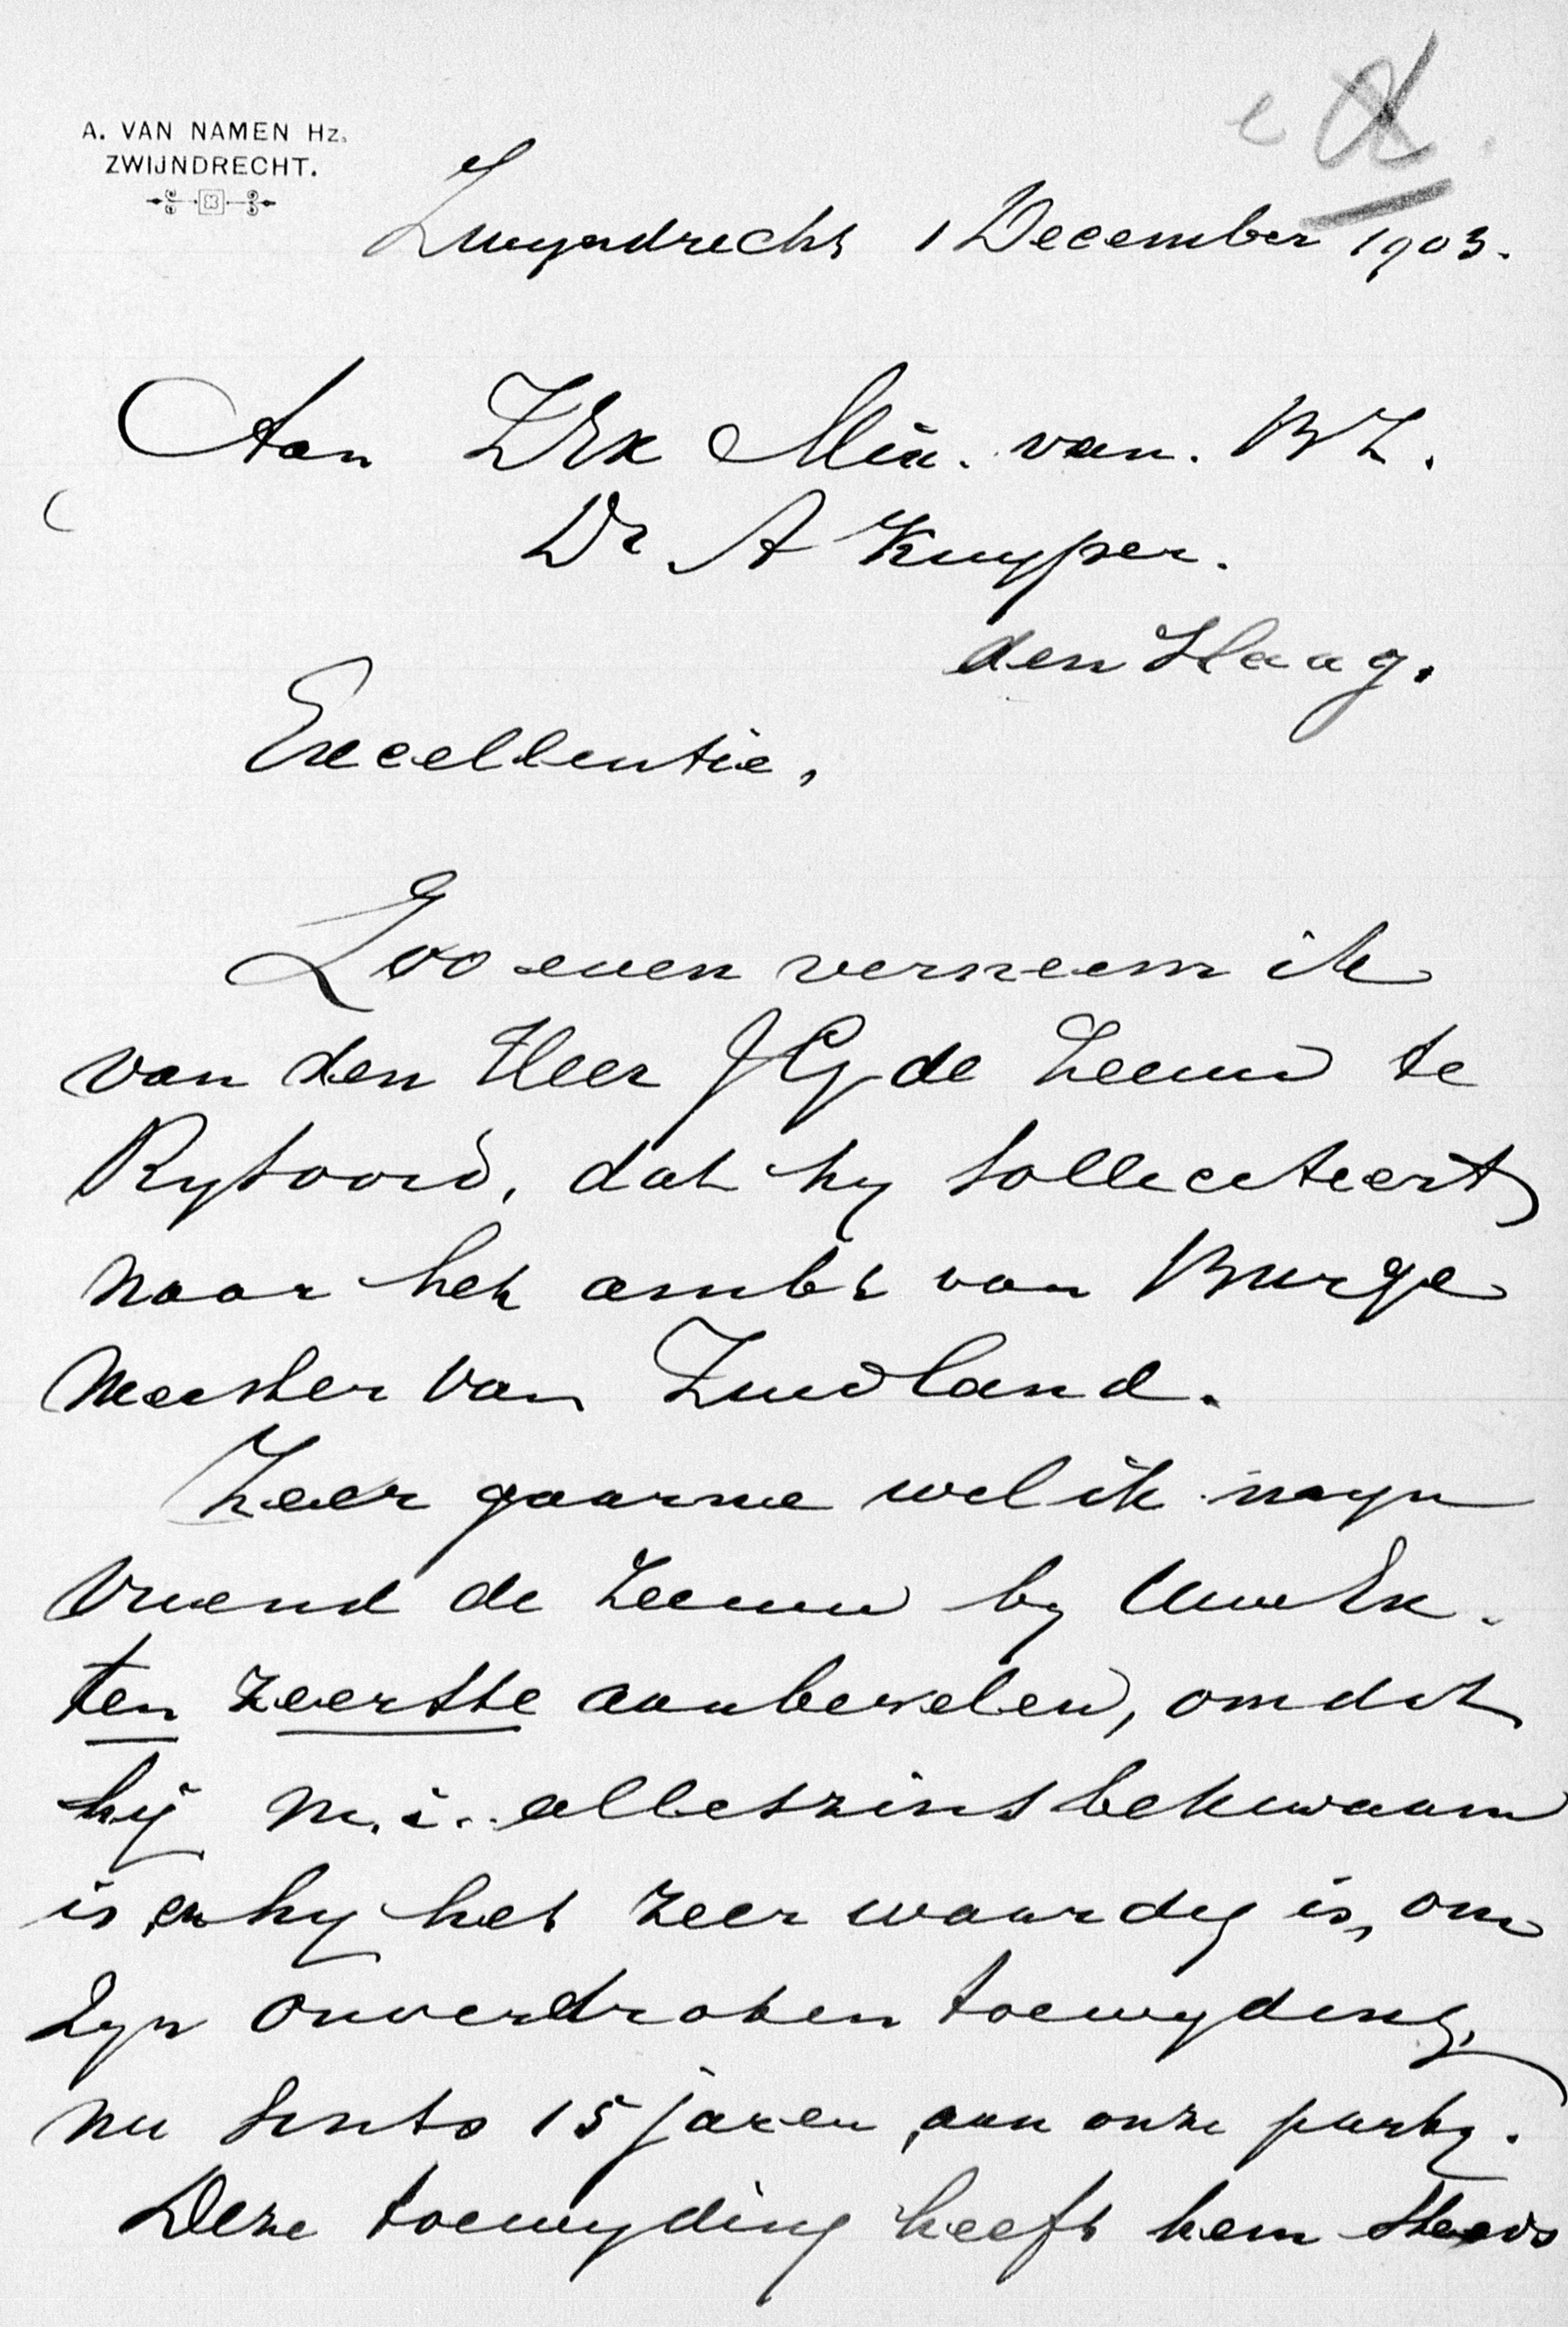 A. VAN NAMEN Hz.
ZWIJNDRECHT.
Zwyndrecht 1 December 1903.
Aan ZEx Min. van. BZ.
Dr A Kuyper.
den Haag.
Excellentie,
Zoo even verneem ik
van den Heer J G de Zeeuw te
Rysoord, dat hy solliciteert
naar het ambt van Burge
meester van Zuidland.
Zeer gaarne wil ik myn
vriend de Zeeuw by Uwe Ex.
ten zeerste aanbevelen, omdat
hij m.i. alleszins bekwaam
is en hy het zeer waardig is, om
zyn onverdroten toewyding,
nu sints 15 jaren, aan onze party.
Deze toewyding heeft hem steeds